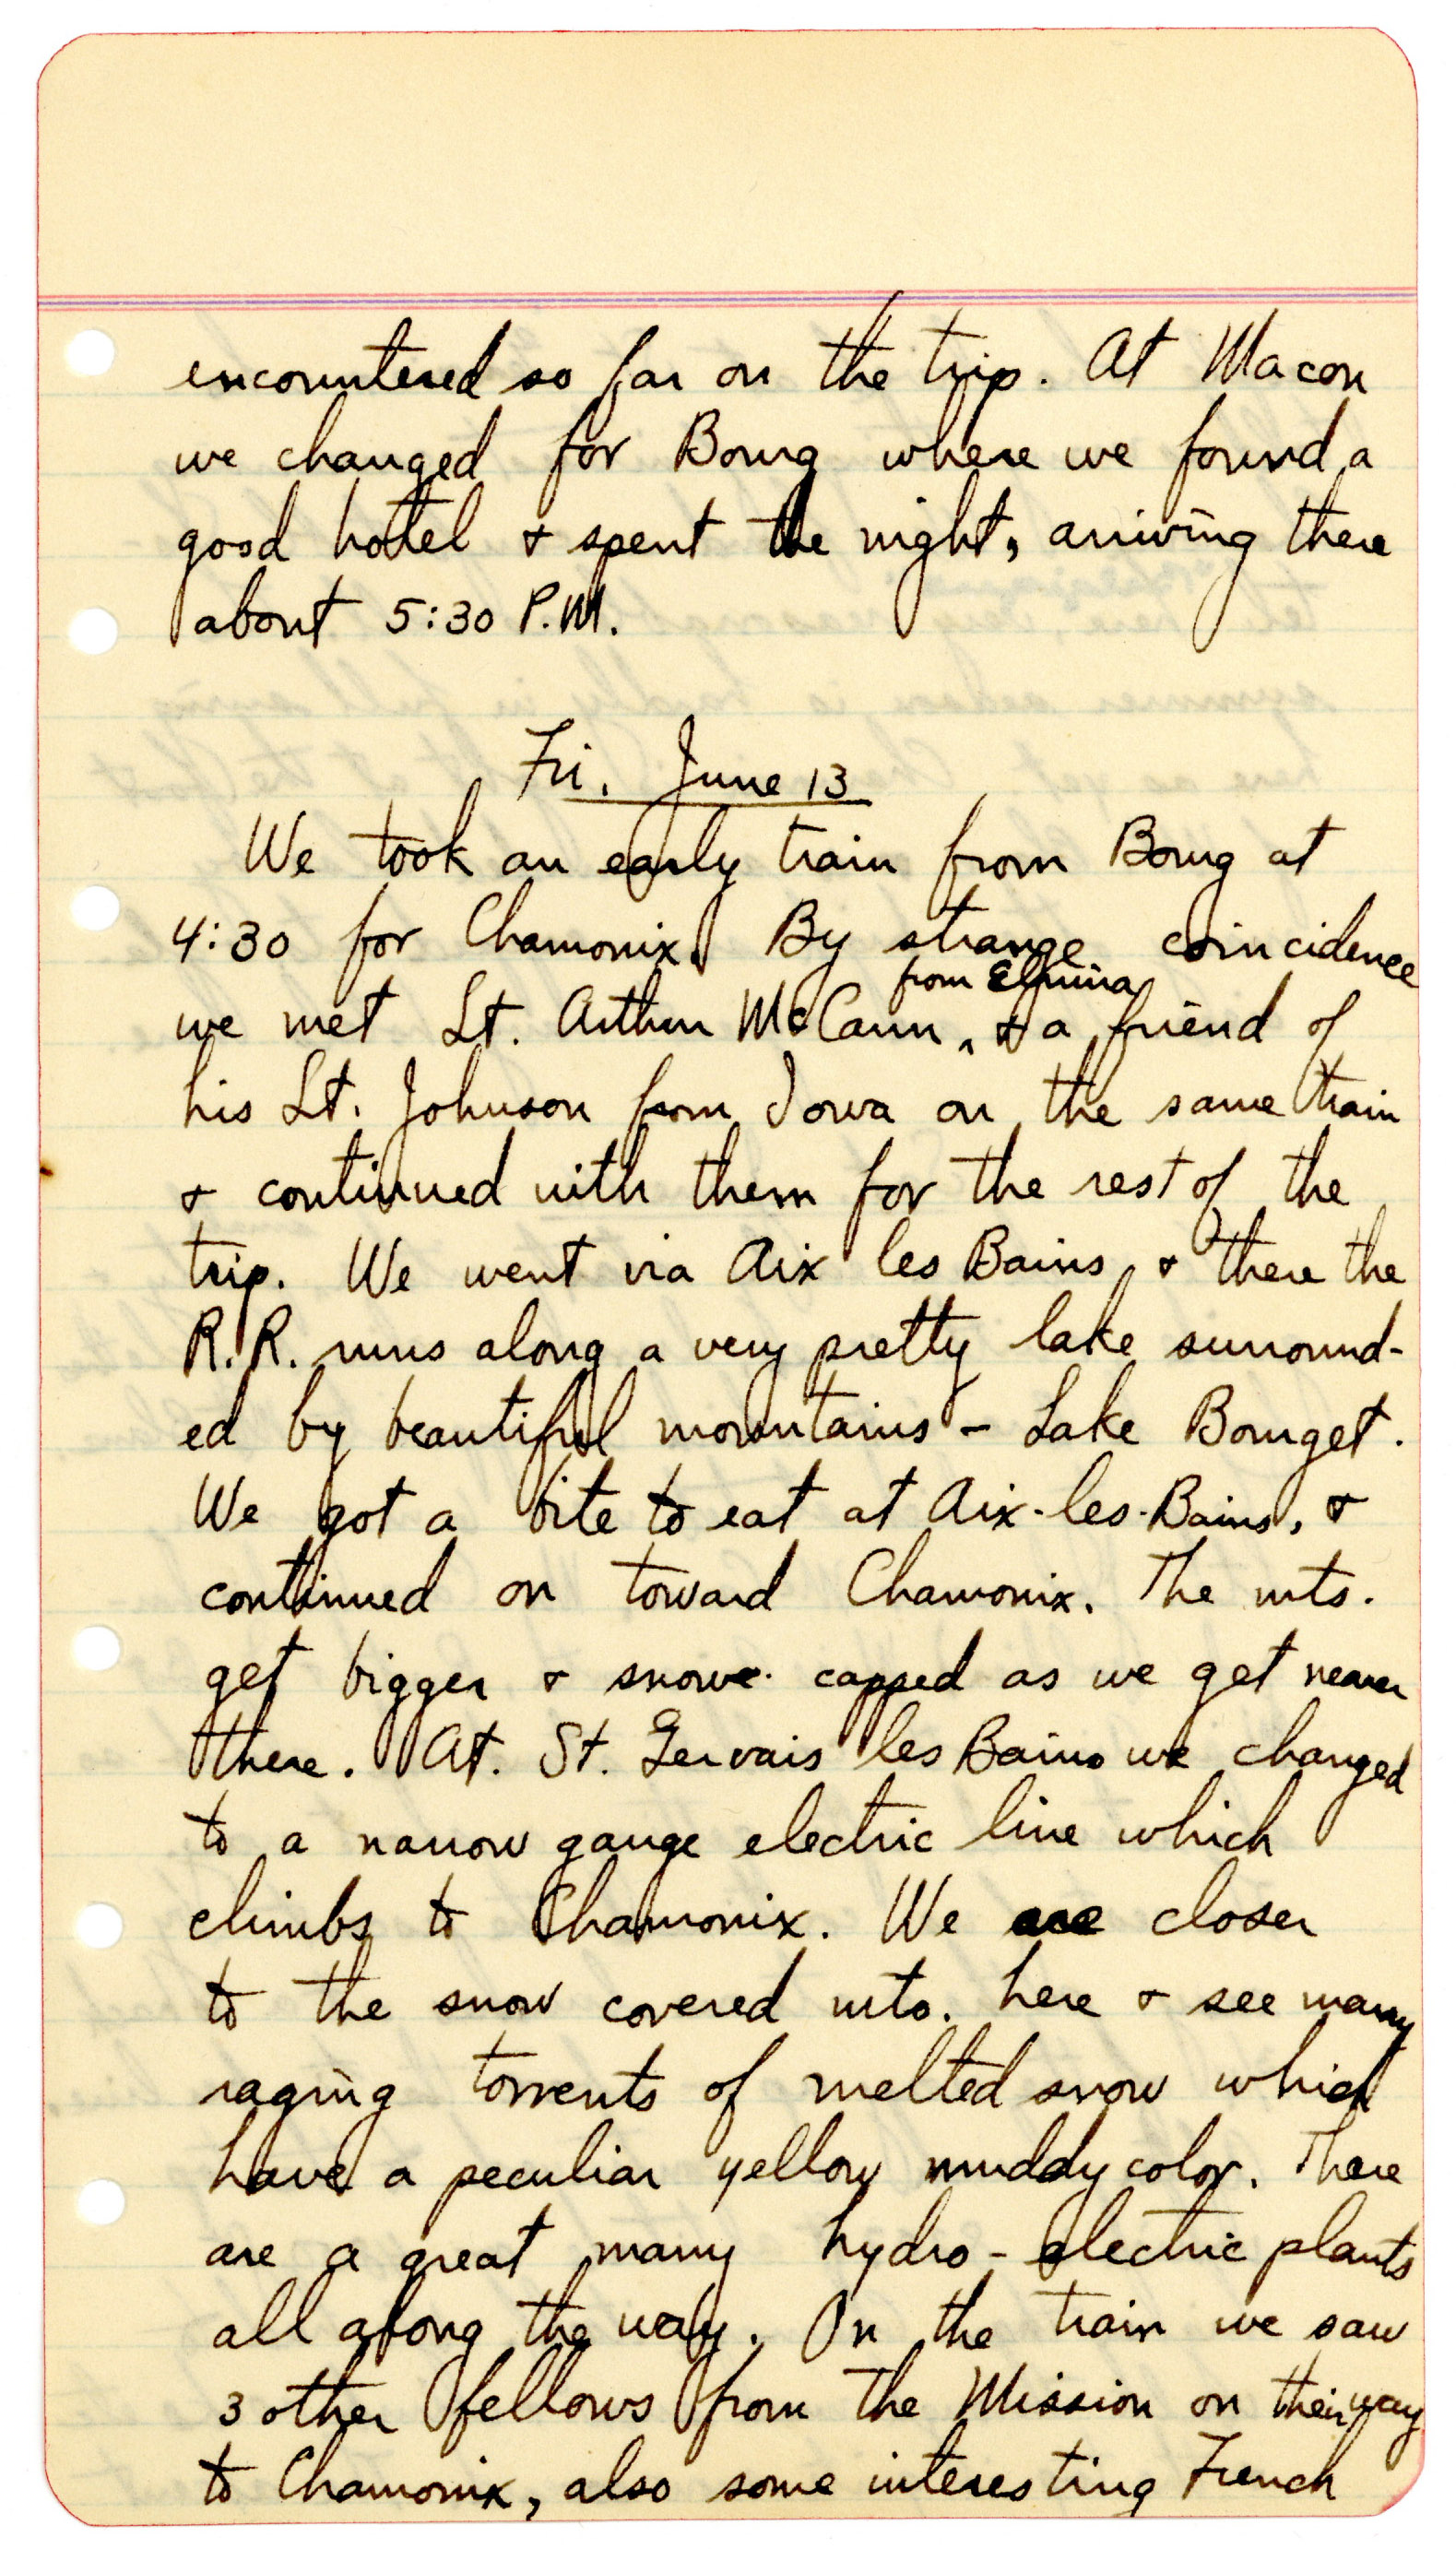 encountered so far on the trip. At Macon
we changed for Bourg where we found a
good hotel & spent the night, arriving there
about 5:30 P.M.
Fri. June 13
We took an early train from Bourg at
4:30 for Chamonix. By strange coincidence
from Elmira
we met Lt. Arthur McCann ‸ & a friend of
his Lt. Johnson from Iowa on the same train
& continued with them for the rest of the
trip. We went via Aix les Bains & there the
R.R. runs along a very pretty lake surround-
ed by beautiful mountains - Lake Bourget.
We got a bite to eat at Aix-les-Bains, &
continued on toward Chamonix. The mts.
get bigger & snow capped as we get nearer
there. At. St. Gervais les Bains we changed
to a narrow gauge electric line which
climbs to Chamonix. We are closer
to the snow covered mts. here & see many
raging torrents of melted snow which
have a peculiar yellow muddy color. There
are a great many hydro-electric plants
all along the way. On the train we saw
3 other fellows from the Mission on their way
to Chamonix, also some interesting French